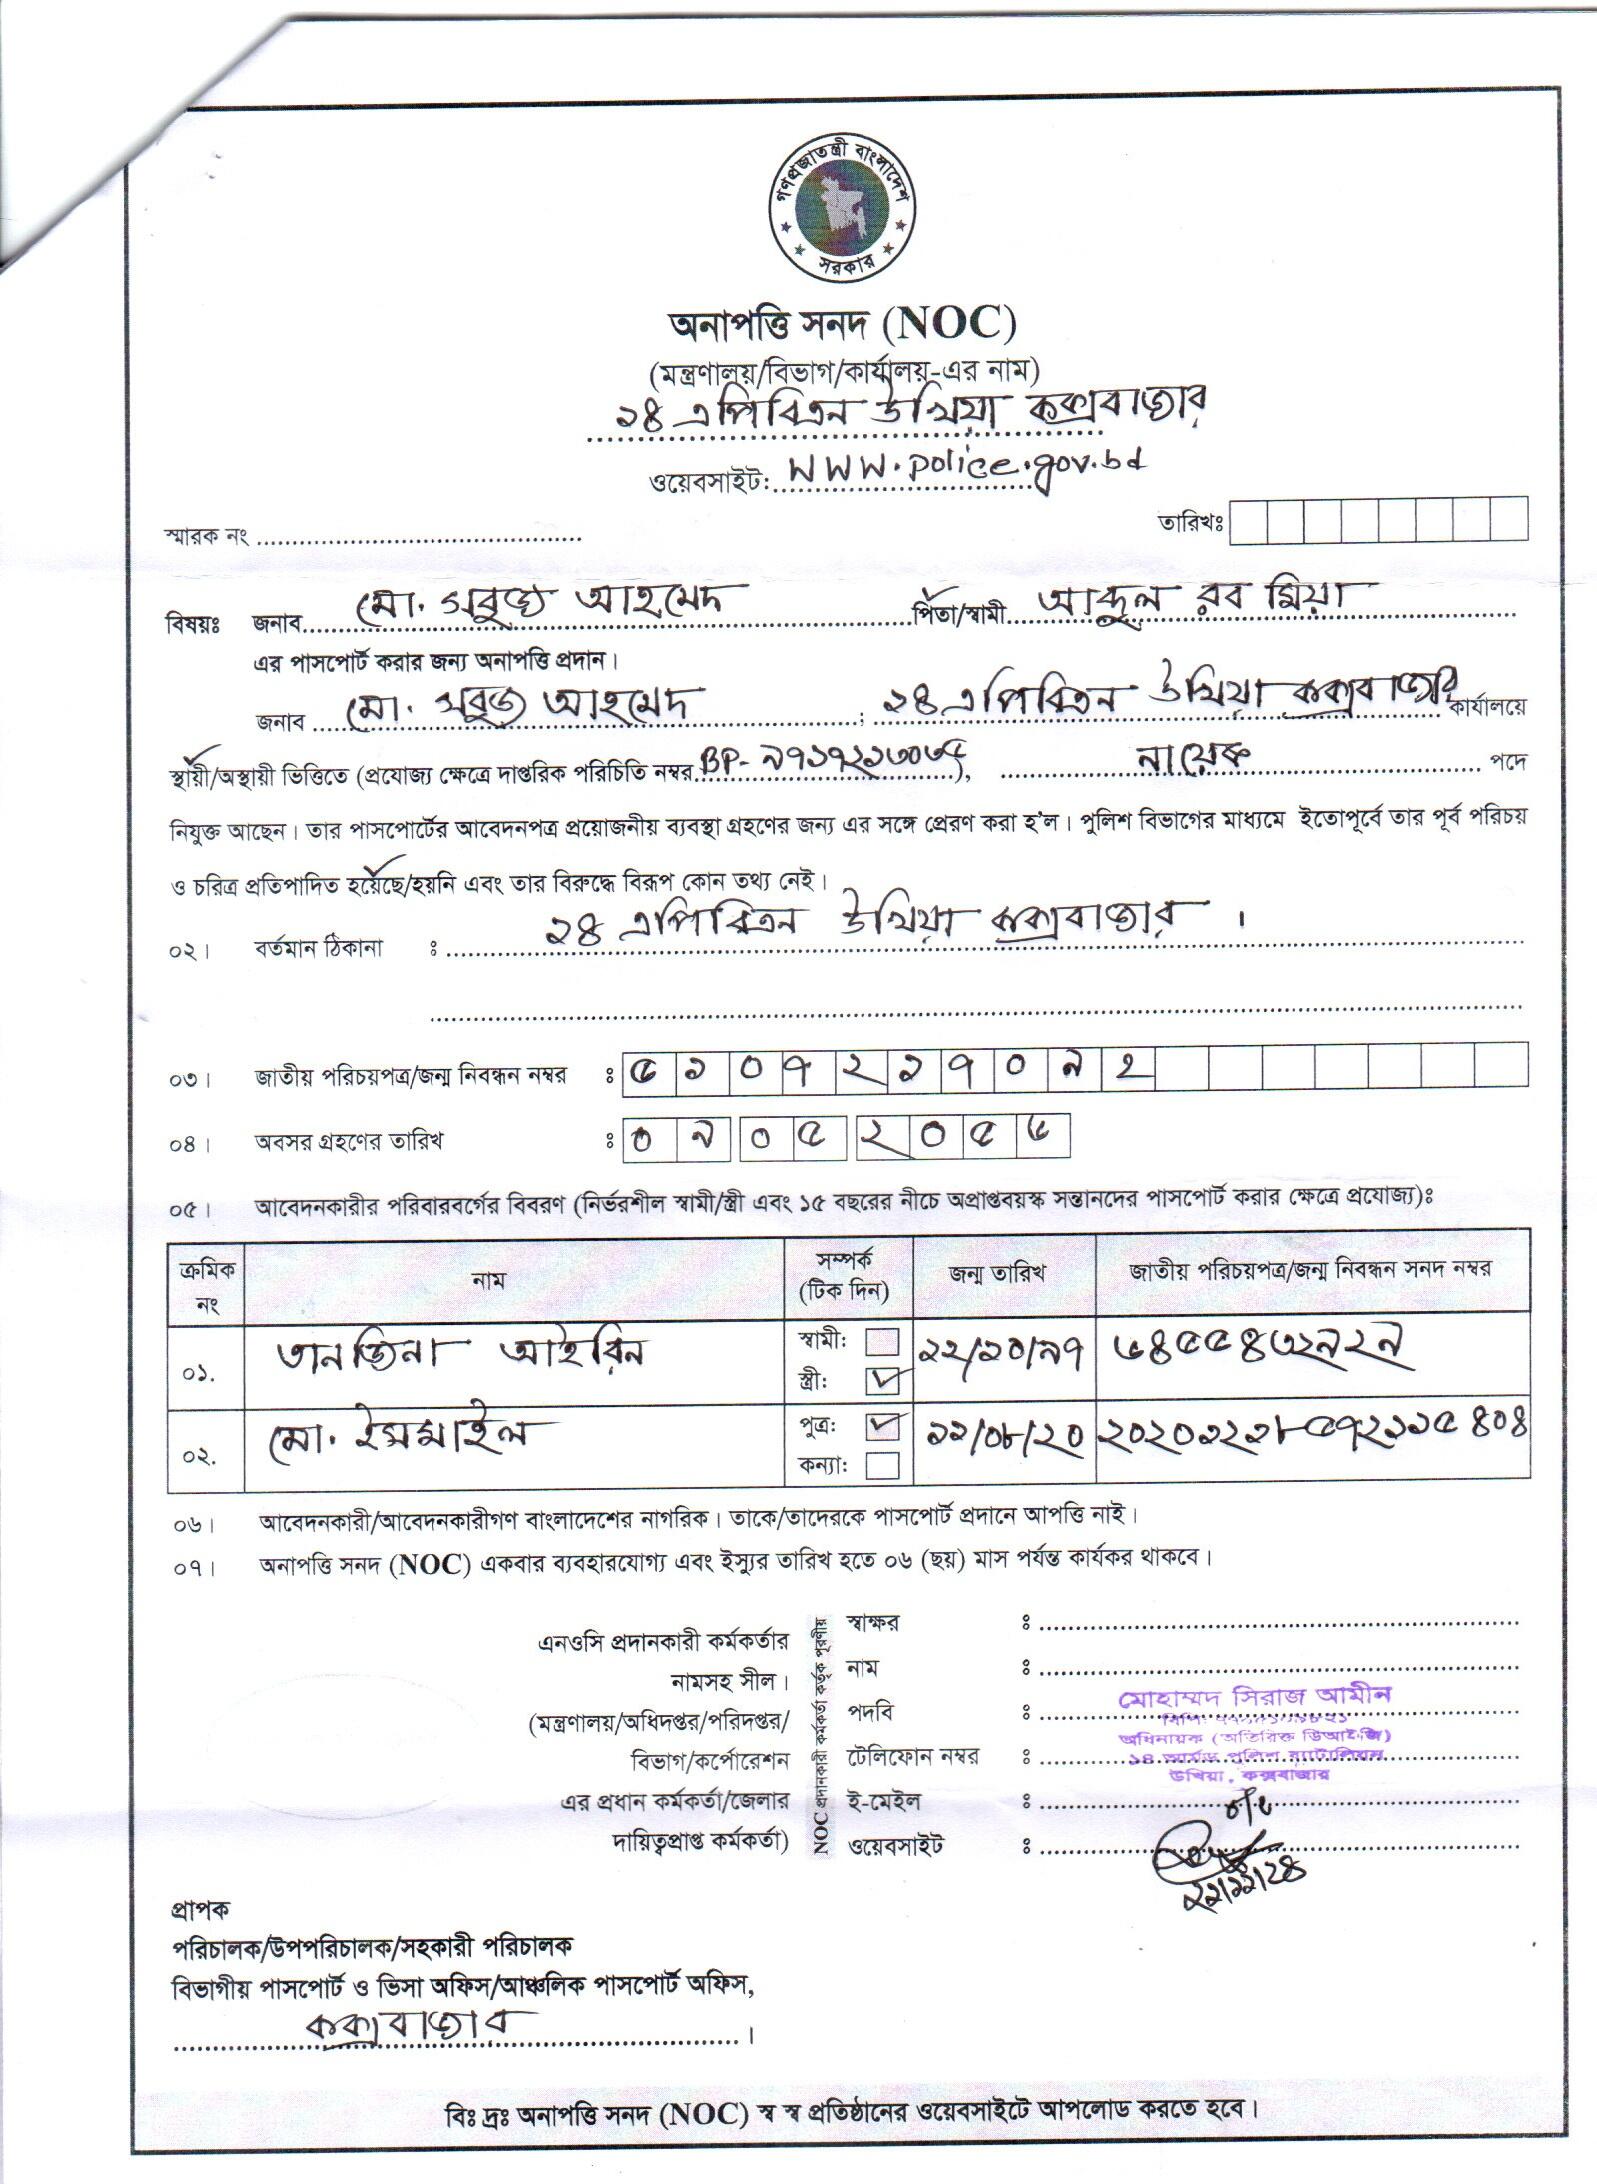 গণপ্রজাতন্ত্রী বাংলাদেশ
সরকার
অনাপত্তি সনদ (NOC)
(মন্ত্রণালয়/বিভাগ/কার্যালয়-এর নাম)
১৪ এপিবিএন উখিয়া কক্সবাজার
ওয়েবসাইট: www.police.gov.bd
স্মারক নং
তারিখঃ
বিষয়ঃ জনাব মো. সবুজ আহমেদ পিতা/স্বামী আব্দুল রব মিয়া
এর পাসপোর্ট করার জন্য অনাপত্তি প্রদান।
জনাব মো. সবুজ আহমেদ ; ১৪ এপিবিএন উখিয়া কক্সবাজার কার্যালয়ে
স্থায়ী/অস্থায়ী ভিত্তিতে (প্রযোজ্য ক্ষেত্রে দাপ্তরিক পরিচিতি নম্বর BP- ), নায়েক পদে
নিযুক্ত আছেন। তার পাসপোর্টের আবেদনপত্র প্রয়োজনীয় ব্যবস্থা গ্রহণের জন্য এর সঙ্গে প্রেরণ করা হ'ল। পুলিশ বিভাগের মাধ্যমে ইতোপূর্বে তার পূর্ব পরিচয়
ও চরিত্র প্রতিপাদিত হয়েছে/হয়নি এবং তার বিরুদ্ধে বিরূপ কোন তথ্য নেই।
০২। বর্তমান ঠিকানা : ১৪ এপিবিএন উখিয়া কক্সবাজার ।
০৩। জাতীয় পরিচয়পত্র/জন্ম নিবন্ধন নম্বর : ৫১০৭২১৭০৯২
০৪। অবসর গ্রহণের তারিখ : ০৯ ০৫ ২০৫৬
০৫। আবেদনকারীর পরিবারবর্গের বিবরণ (নির্ভরশীল স্বামী/স্ত্রী এবং ১৫ বছরের নীচে অপ্রাপ্তবয়স্ক সন্তানদের পাসপোর্ট করার ক্ষেত্রে প্রযোজ্য):
ক্রমিক নং নাম সম্পর্ক (টিক দিন) জন্ম তারিখ জাতীয় পরিচয়পত্র/জন্ম নিবন্ধন সনদ নম্বর
০১. তানজিনা আইরিন স্বামী: স্ত্রী: ✓
০২. মো. ইসমাইল পুত্র: ✓ কন্যা: ১১/০৮/২০
০৬। আবেদনকারী/আবেদনকারীগণ বাংলাদেশের নাগরিক। তাকে/তাদেরকে পাসপোর্ট প্রদানে আপত্তি নাই।
০৭। অনাপত্তি সনদ (NOC) একবার ব্যবহারযোগ্য এবং ইস্যুর তারিখ হতে ০৬ (ছয়) মাস পর্যন্ত কার্যকর থাকবে।
এনওসি প্রদানকারী কর্মকর্তার
নামসহ সীল।
(মন্ত্রণালয়/অধিদপ্তর/পরিদপ্তর/
বিভাগ/কর্পোরেশন
এর প্রধান কর্মকর্তা/জেলার
দায়িত্বপ্রাপ্ত কর্মকর্তা)
NOC প্রদানকারী কর্মকর্তা কর্তৃক পূরণীয়
স্বাক্ষর :
নাম :
পদবি :
টেলিফোন নম্বর :
ই-মেইল :
ওয়েবসাইট :
মোহাম্মদ সিরাজ আমীন
অধিনায়ক (অতিরিক্ত ডিআইজি)
১৪ আর্মড পুলিশ ব্যাটালিয়ন
উখিয়া, কক্সবাজার
প্রাপক
পরিচালক/উপপরিচালক/সহকারী পরিচালক
বিভাগীয় পাসপোর্ট ও ভিসা অফিস/আঞ্চলিক পাসপোর্ট অফিস,
কক্সবাজার ।
বিঃ দ্রঃ অনাপত্তি সনদ (NOC) স্ব স্ব প্রতিষ্ঠানের ওয়েবসাইটে আপলোড করতে হবে।